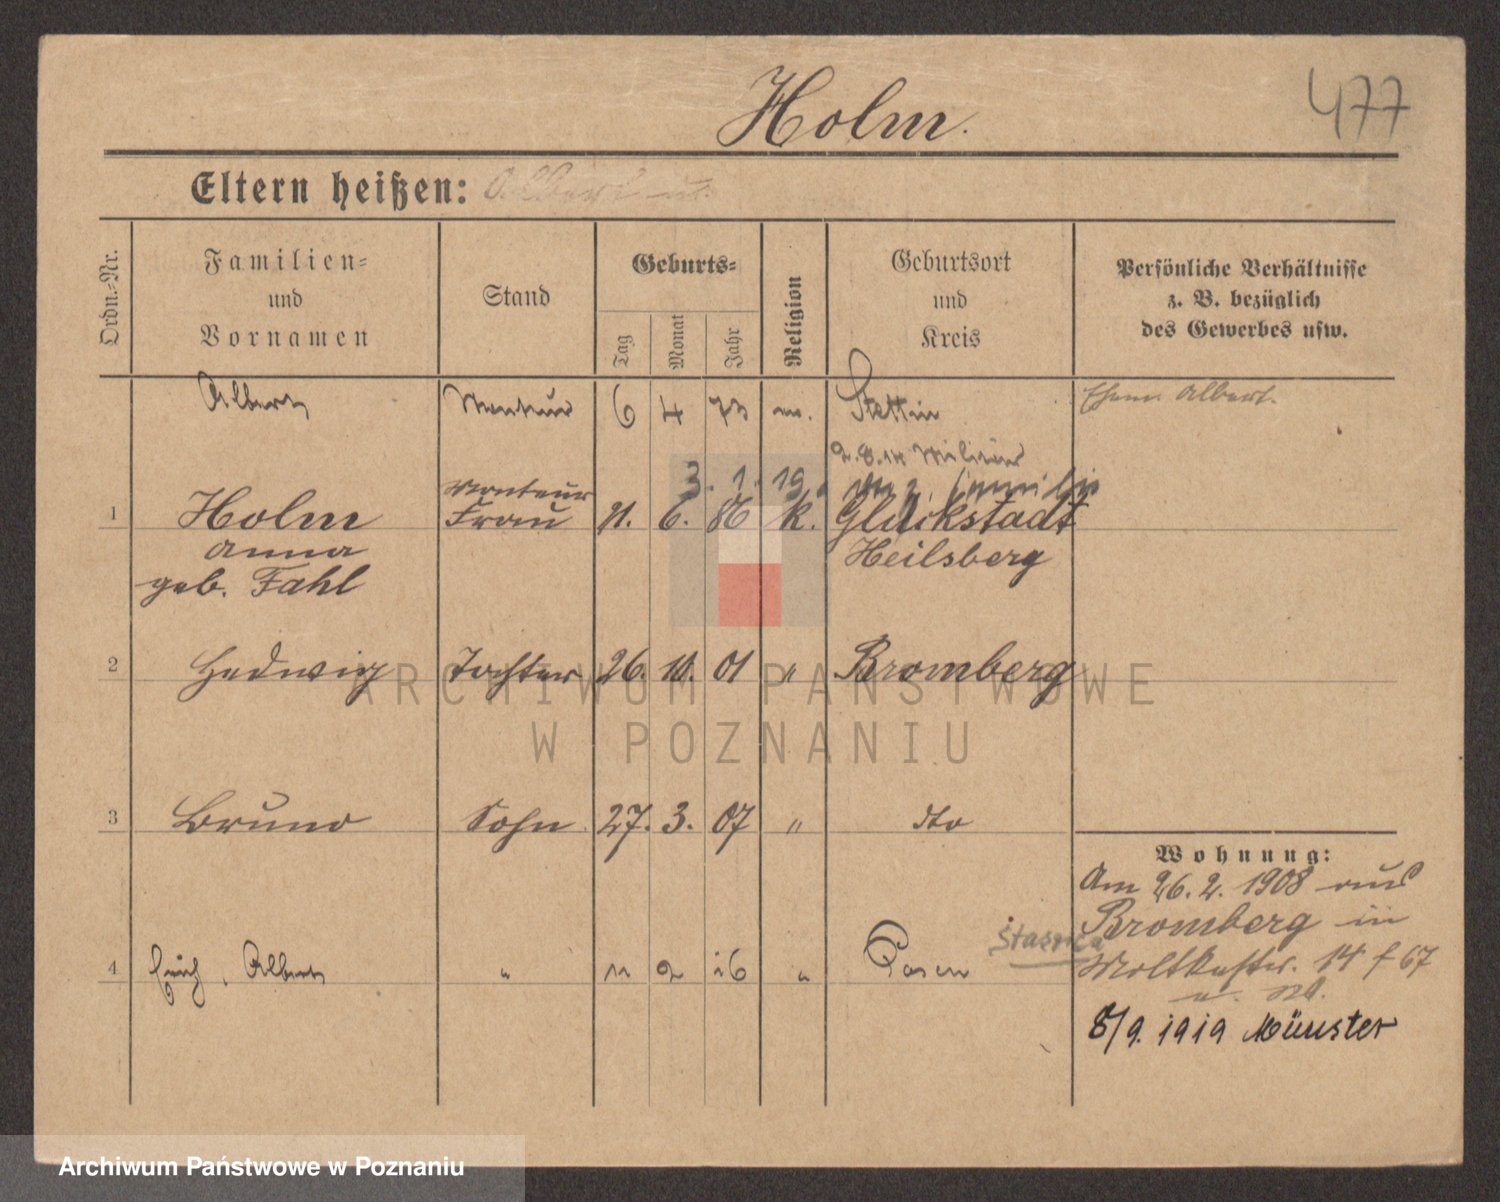 477
Holm.
Eltern heißen: Albert u.
Ordn.-Nr.
Familien-
und
Vornamen
Stand
Geburts-
Tag
Monat
Jahr
Religion
Geburtsort
und
Kreis
Persönliche Verhältnisse
z. B. bezüglich
des Gewerbes usw.
Albert Monteur 6 4 73 Stettin Ehem. Albert.
2.8.14 Militär
3. 1. 19.
Monteur
1 Holm Frau 21. 6. 86 k. Glockstadt
Anna Heilsberg
geb. Fahl
2 Hedwig Tochter 26. 10. 01 " Bromberg
3 Bruno Sohn 27. 3. 07 " dto
Wohnung:
Am 26. 2. 1908 aus
Bromberg in
4 Erich, Albert " 11 2 16 " Posen
Moltkestr. 14
8/9. 1919 Münster
ARCHIWUM PAŃSTWOWE
W POZNANIU
Archiwum Państwowe w Poznaniu